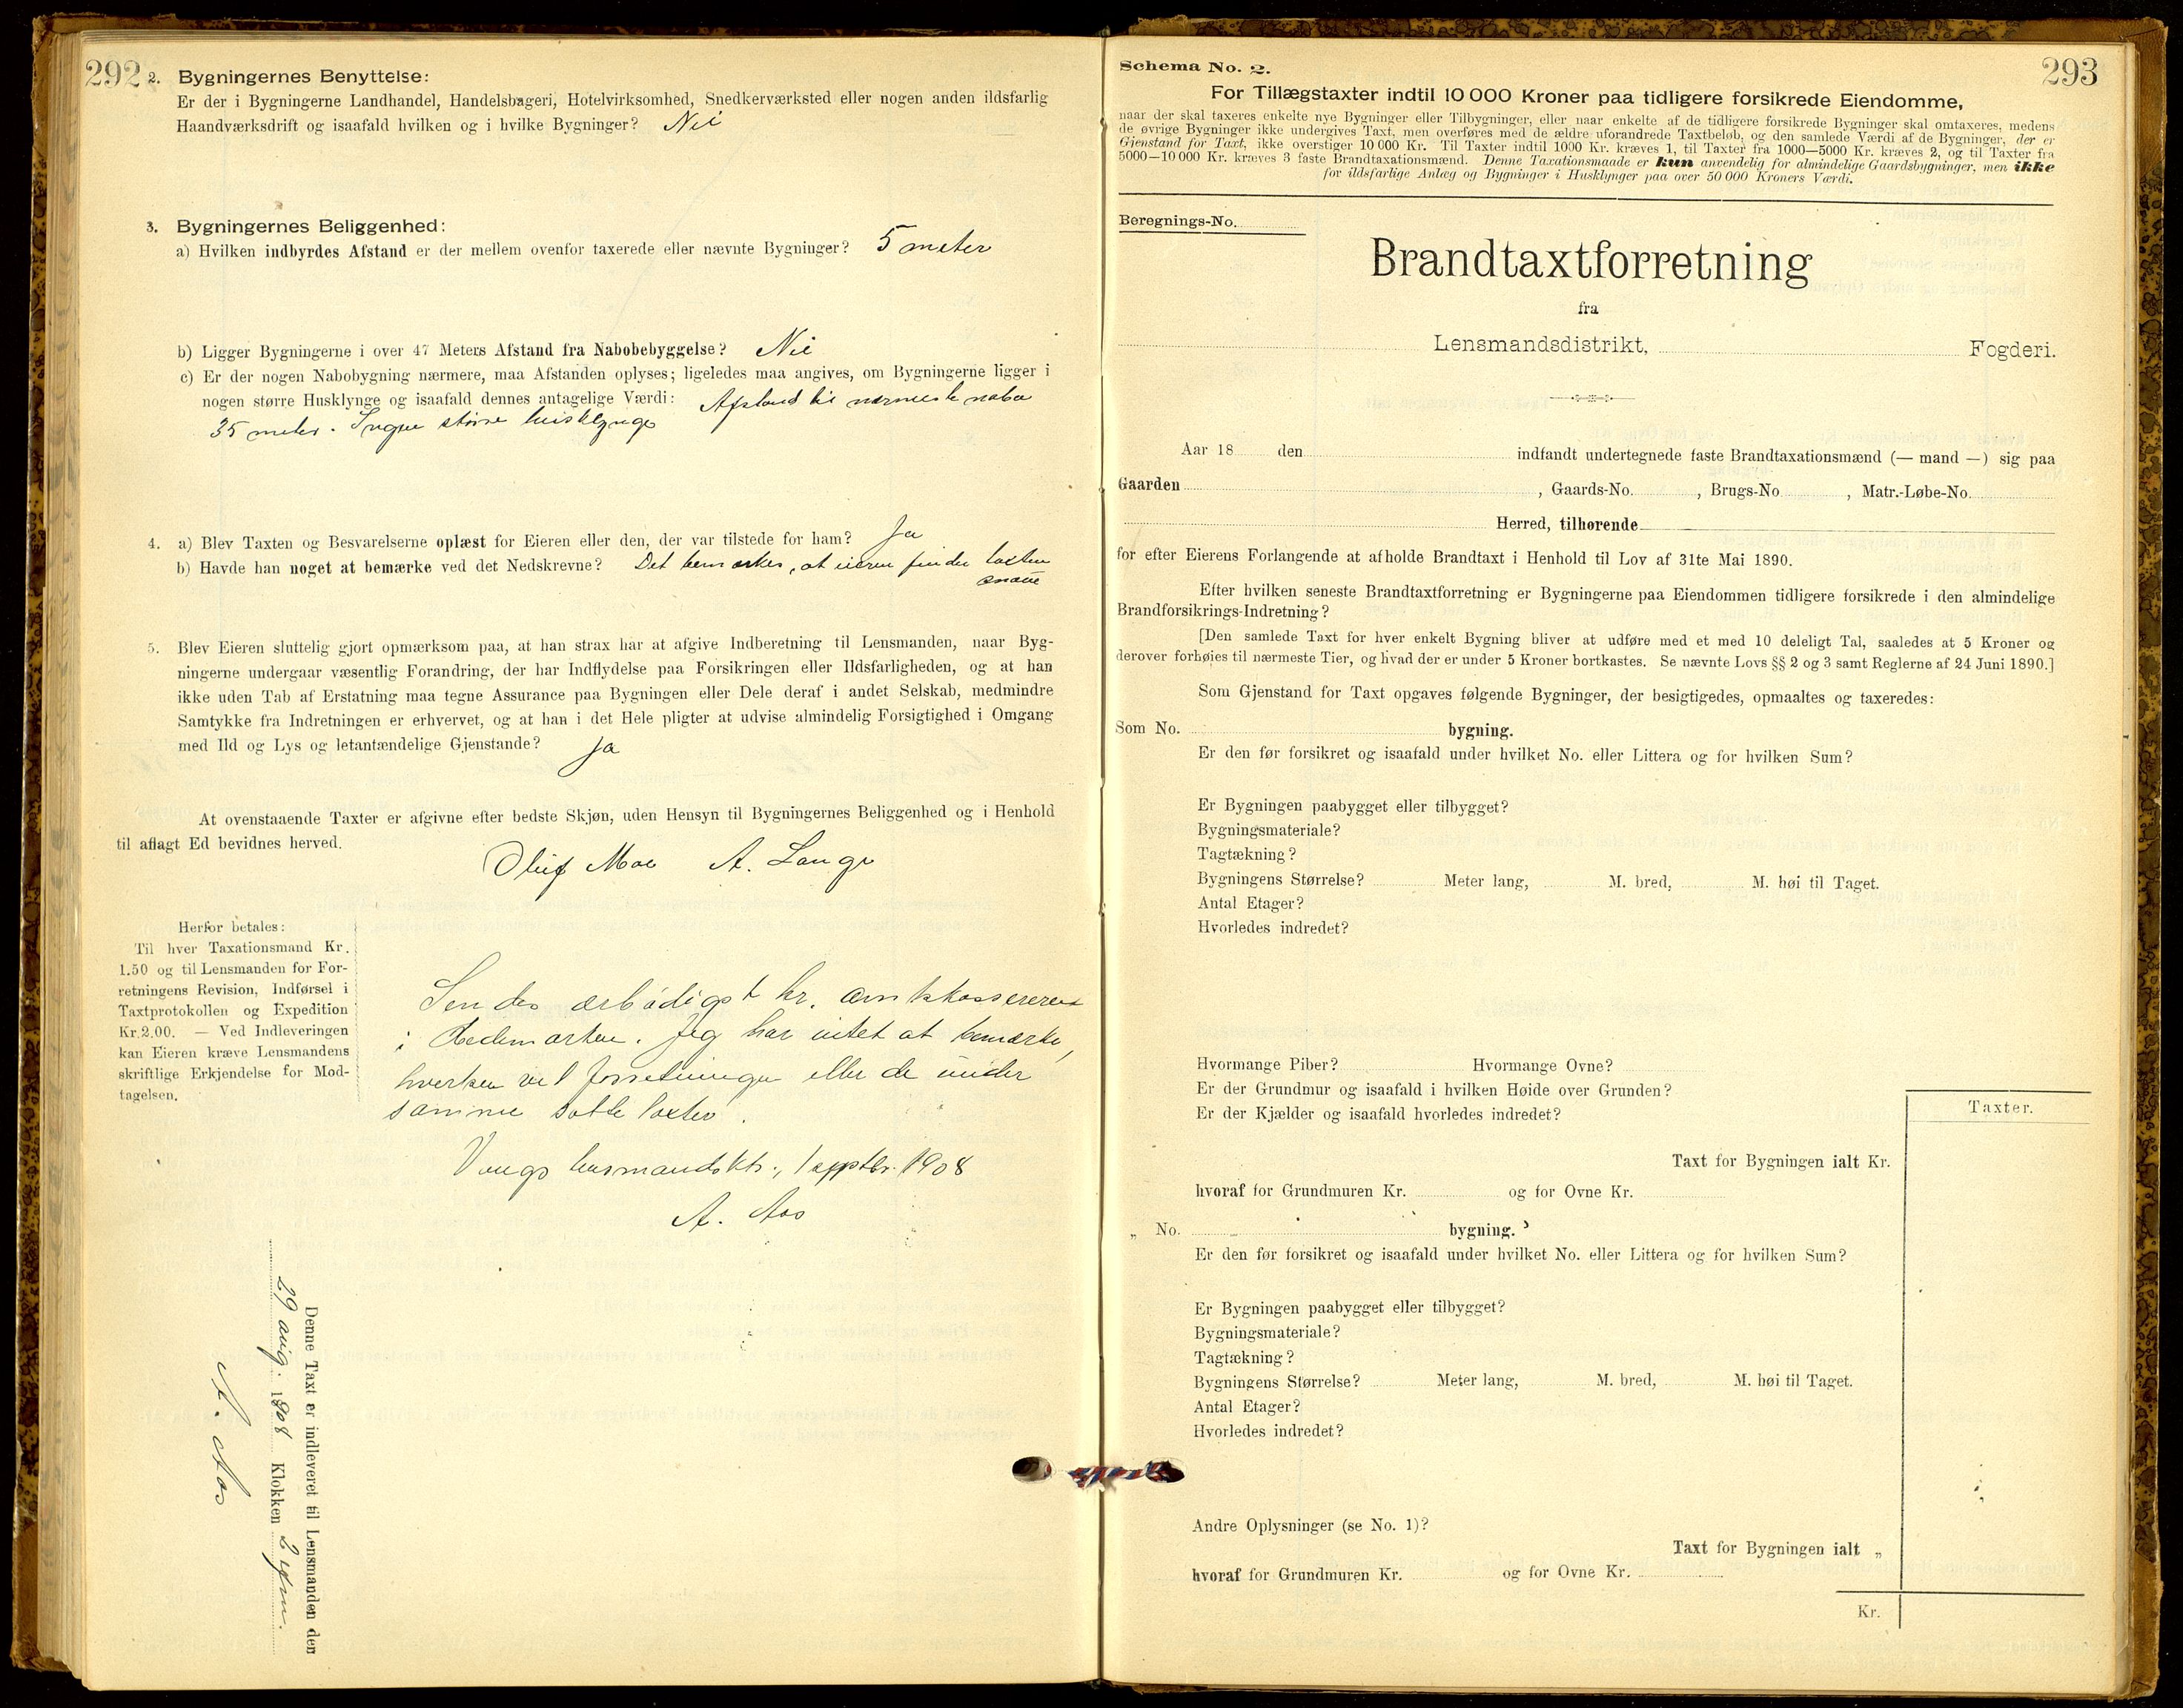 292
2. Bygningernes Benyttelse:
Er der i Bygningerne Landhandel, Handelsbageri, Hotelvirksomhed, Snedkerværksted eller nogen anden ildsfarlig
Haandværksdrift og isaafald hvilken og i hvilke Bygninger? Nei
3. Bygningernes Beliggenhed:
a) Hvilken indbyrdes Afstand er der mellem ovenfor taxerede eller nævnte Bygninger? 5 meter
b) Ligger Bygningerne i over 47 Meters Afstand fra Nabobebyggelse? Nei
c) Er der nogen Nabobygning nærmere, maa Afstanden oplyses; ligeledes maa angives, om Bygningerne ligger i
nogen større Husklynge og isaafald dennes antagelige Værdi: Afstand til nærmeste nabo
35 meter. Ingen større husklynge
4. a) Blev Taxten og Besvarelserne oplæst for Eieren eller den, der var tilstede for ham? Ja
b) Havde han noget at bemærke ved det Nedskrevne? Det bemærkes, at eieren finder taxten
5. Blev Eieren sluttelig gjort opmærksom paa, at han strax har at afgive Indberetning til Lensmanden, naar Byg-
ningerne undergaar væsentlig Forandring, der har Indflydelse paa Forsikringen eller Ildsfarligheden, og at han
ikke uden Tab af Erstatning maa tegne Assurance paa Bygningen eller Dele deraf i andet Selskab, medmindre
Samtykke fra Indretningen er erhvervet, og at han i det Hele pligter at udvise almindelig Forsigtighed i Omgang
med Ild og Lys og letantændelige Gjenstande? Ja
At ovenstaaende Taxter er afgivne efter bedste Skjøn, uden Hensyn til Bygningernes Beliggenhed og i Henhold
til aflagt Ed bevidnes herved.
Oluf Moe A. Lange
Herfor betales:
Til hver Taxationsmand Kr.
1.50 og til Lensmanden for For-
retningens Revision, Indførsel i
Taxtprotokollen og Expedition
Kr. 2.00. — Ved Indleveringen
kan Eieren kræve Lensmandens
skriftlige Erkjendelse for Mod-
tagelsen.
Sendes ærbødigst hr. amtskassereren
i Hedemarken. Jeg har intet at bemærke,
hverken ved forretningen eller de under
samme satte taxter.
Vangs lensmandsktr., 1 septbr. 1908
A. Aas
Denne Taxt er indleveret til Lensmanden den
29 aug. 1908 Klokken 2 efm.
A. Aas
293
Schema No. 2.
For Tillægstaxter indtil 10 000 Kroner paa tidligere forsikrede Eiendomme,
naar der skal taxeres enkelte nye Bygninger eller Tilbygninger, eller naar enkelte af de tidligere forsikrede Bygninger skal omtaxeres, medens
de øvrige Bygninger ikke undergives Taxt, men overføres med de ældre uforandrede Taxtbeløb, og den samlede Værdi af de Bygninger, der er
Gjenstand for Taxt, ikke overstiger 10 000 Kr. Til Taxter indtil 1000 Kr. kræves 1, til Taxter fra 1000—5000 Kr. kræves 2, og til Taxter fra
5000—10 000 Kr. kræves 3 faste Brandtaxationsmænd. Denne Taxationsmaade er kun anvendelig for almindelige Gaardsbygninger, men ikke
for ildsfarlige Anlæg og Bygninger i Husklynger paa over 50 000 Kroners Værdi.
Beregnings-No.
Brandtaxtforretning
fra
Lensmandsdistrikt, Fogderi.
Aar 18 den indfandt undertegnede faste Brandtaxationsmænd (— mand —) sig paa
Gaarden , Gaards-No. , Brugs-No , Matr.-Løbe-No.
Herred, tilhørende
for efter Eierens Forlangende at afholde Brandtaxt i Henhold til Lov af 31te Mai 1890.
Efter hvilken seneste Brandtaxtforretning er Bygningerne paa Eiendommen tidligere forsikrede i den almindelige
Brandforsikrings-Indretning?
[Den samlede Taxt for hver enkelt Bygning bliver at udføre med et med 10 deleligt Tal, saaledes at 5 Kroner og
derover forhøies til nærmeste Tier, og hvad der er under 5 Kroner bortkastes. Se nævnte Lovs §§ 2 og 3 samt Reglerne af 24 Juni 1890.]
Som Gjenstand for Taxt opgaves følgende Bygninger, der besigtigedes, opmaaltes og taxeredes:
Som No. bygning.
Er den før forsikret og isaafald under hvilket No. eller Littera og for hvilken Sum?
Er Bygningen paabygget eller tilbygget?
Bygningsmateriale?
Tagtækning?
Bygningens Størrelse? Meter lang, M. bred, M. høi til Taget.
Antal Etager?
Hvorledes indredet?
Hvormange Piber? Hvormange Ovne?
Er der Grundmur og isaafald i hvilken Høide over Grunden?
Er der Kjælder og isaafald hvorledes indredet?
Taxter.
Taxt for Bygningen ialt Kr.
hvoraf for Grundmuren Kr. og for Ovne Kr.
„ No. bygning.
Er den før forsikret og isaafald under hvilket No. eller Littera og for hvilken Sum?
Er Bygningen paabygget eller tilbygget?
Bygningsmateriale?
Tagtækning?
Bygningens Størrelse? Meter lang, M. bred, M. høi til Taget.
Antal Etager?
Hvorledes indredet?
Andre Oplysninger (se No. 1)?
Taxt for Bygningen ialt „
hvoraf for Grundmuren Kr. og for Ovne Kr.
Kr.